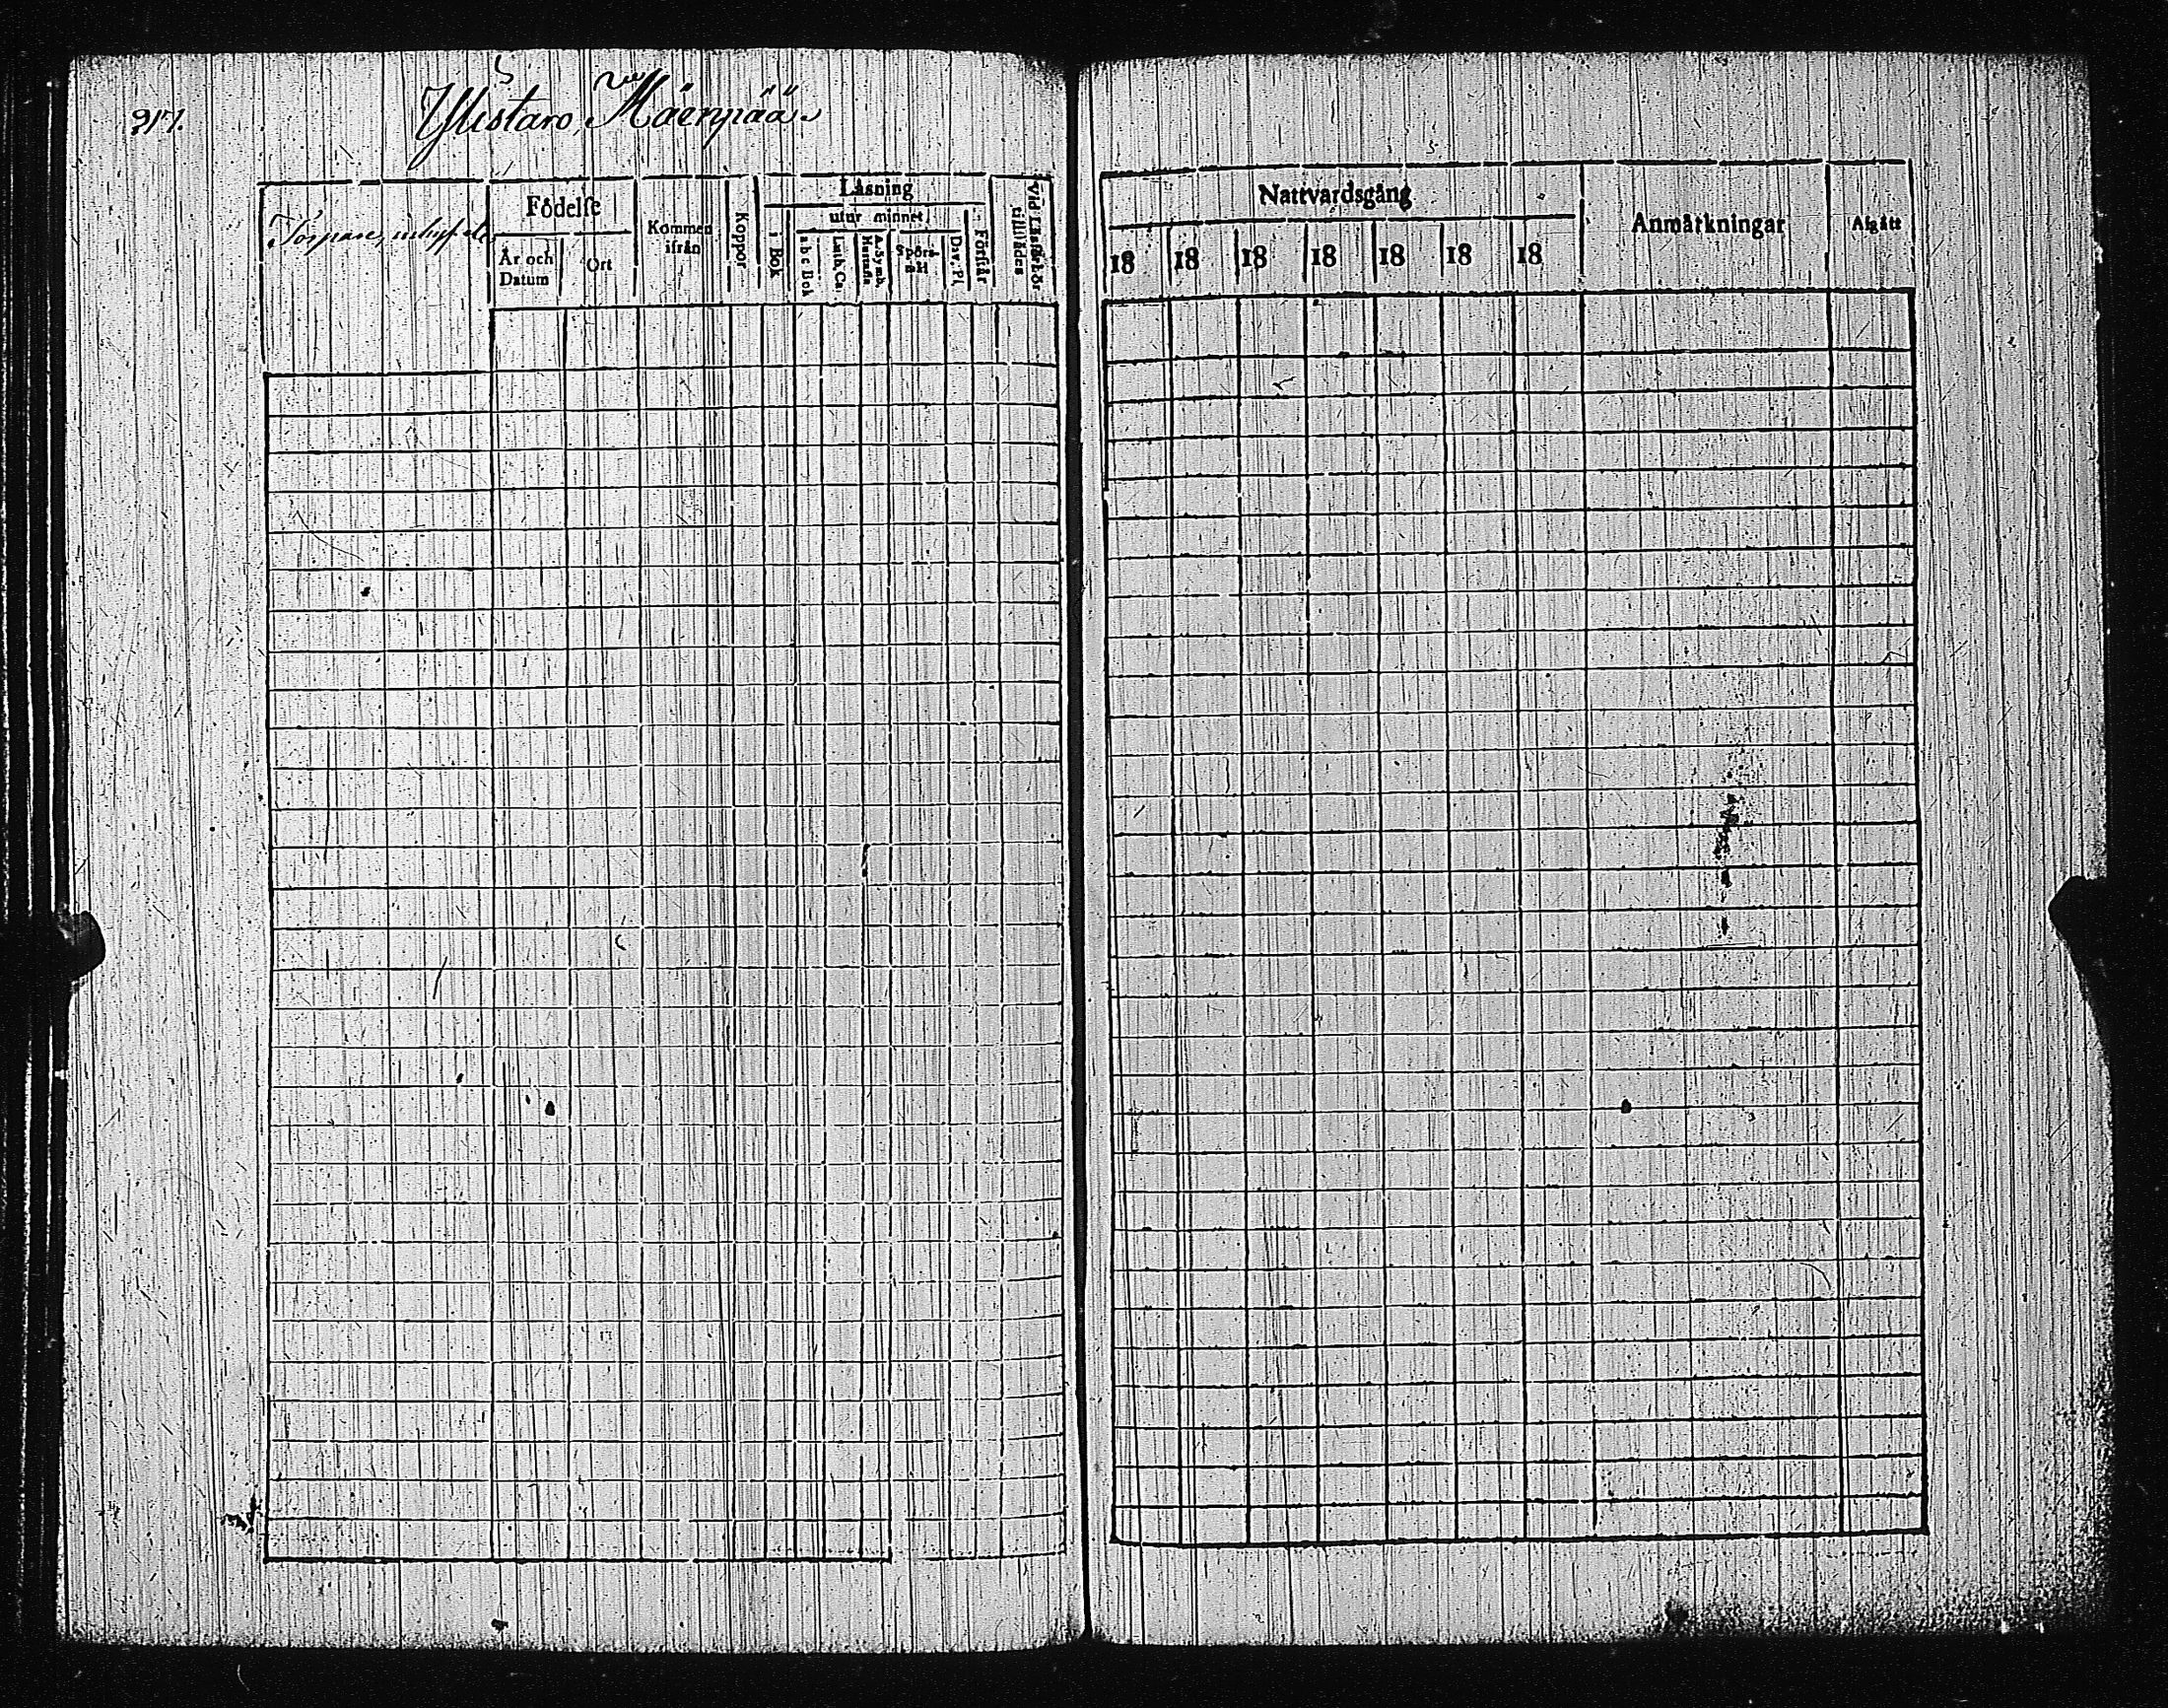 Ylistaro Mäenpää
Födelse
Kommen ifrån
Koppor
Läsning
Torpare, inhyses
År och Datum
Ort
i Bok
utur minnet
a b c Bok
Luth. Ca.
A. Symb.
Spörsmål
Dav. Ps.
Förstår
Vid Läsförhör tillstädes
Nattvardsgång
Anmärkningar
Afgått
18 18 18 18 18 18 18